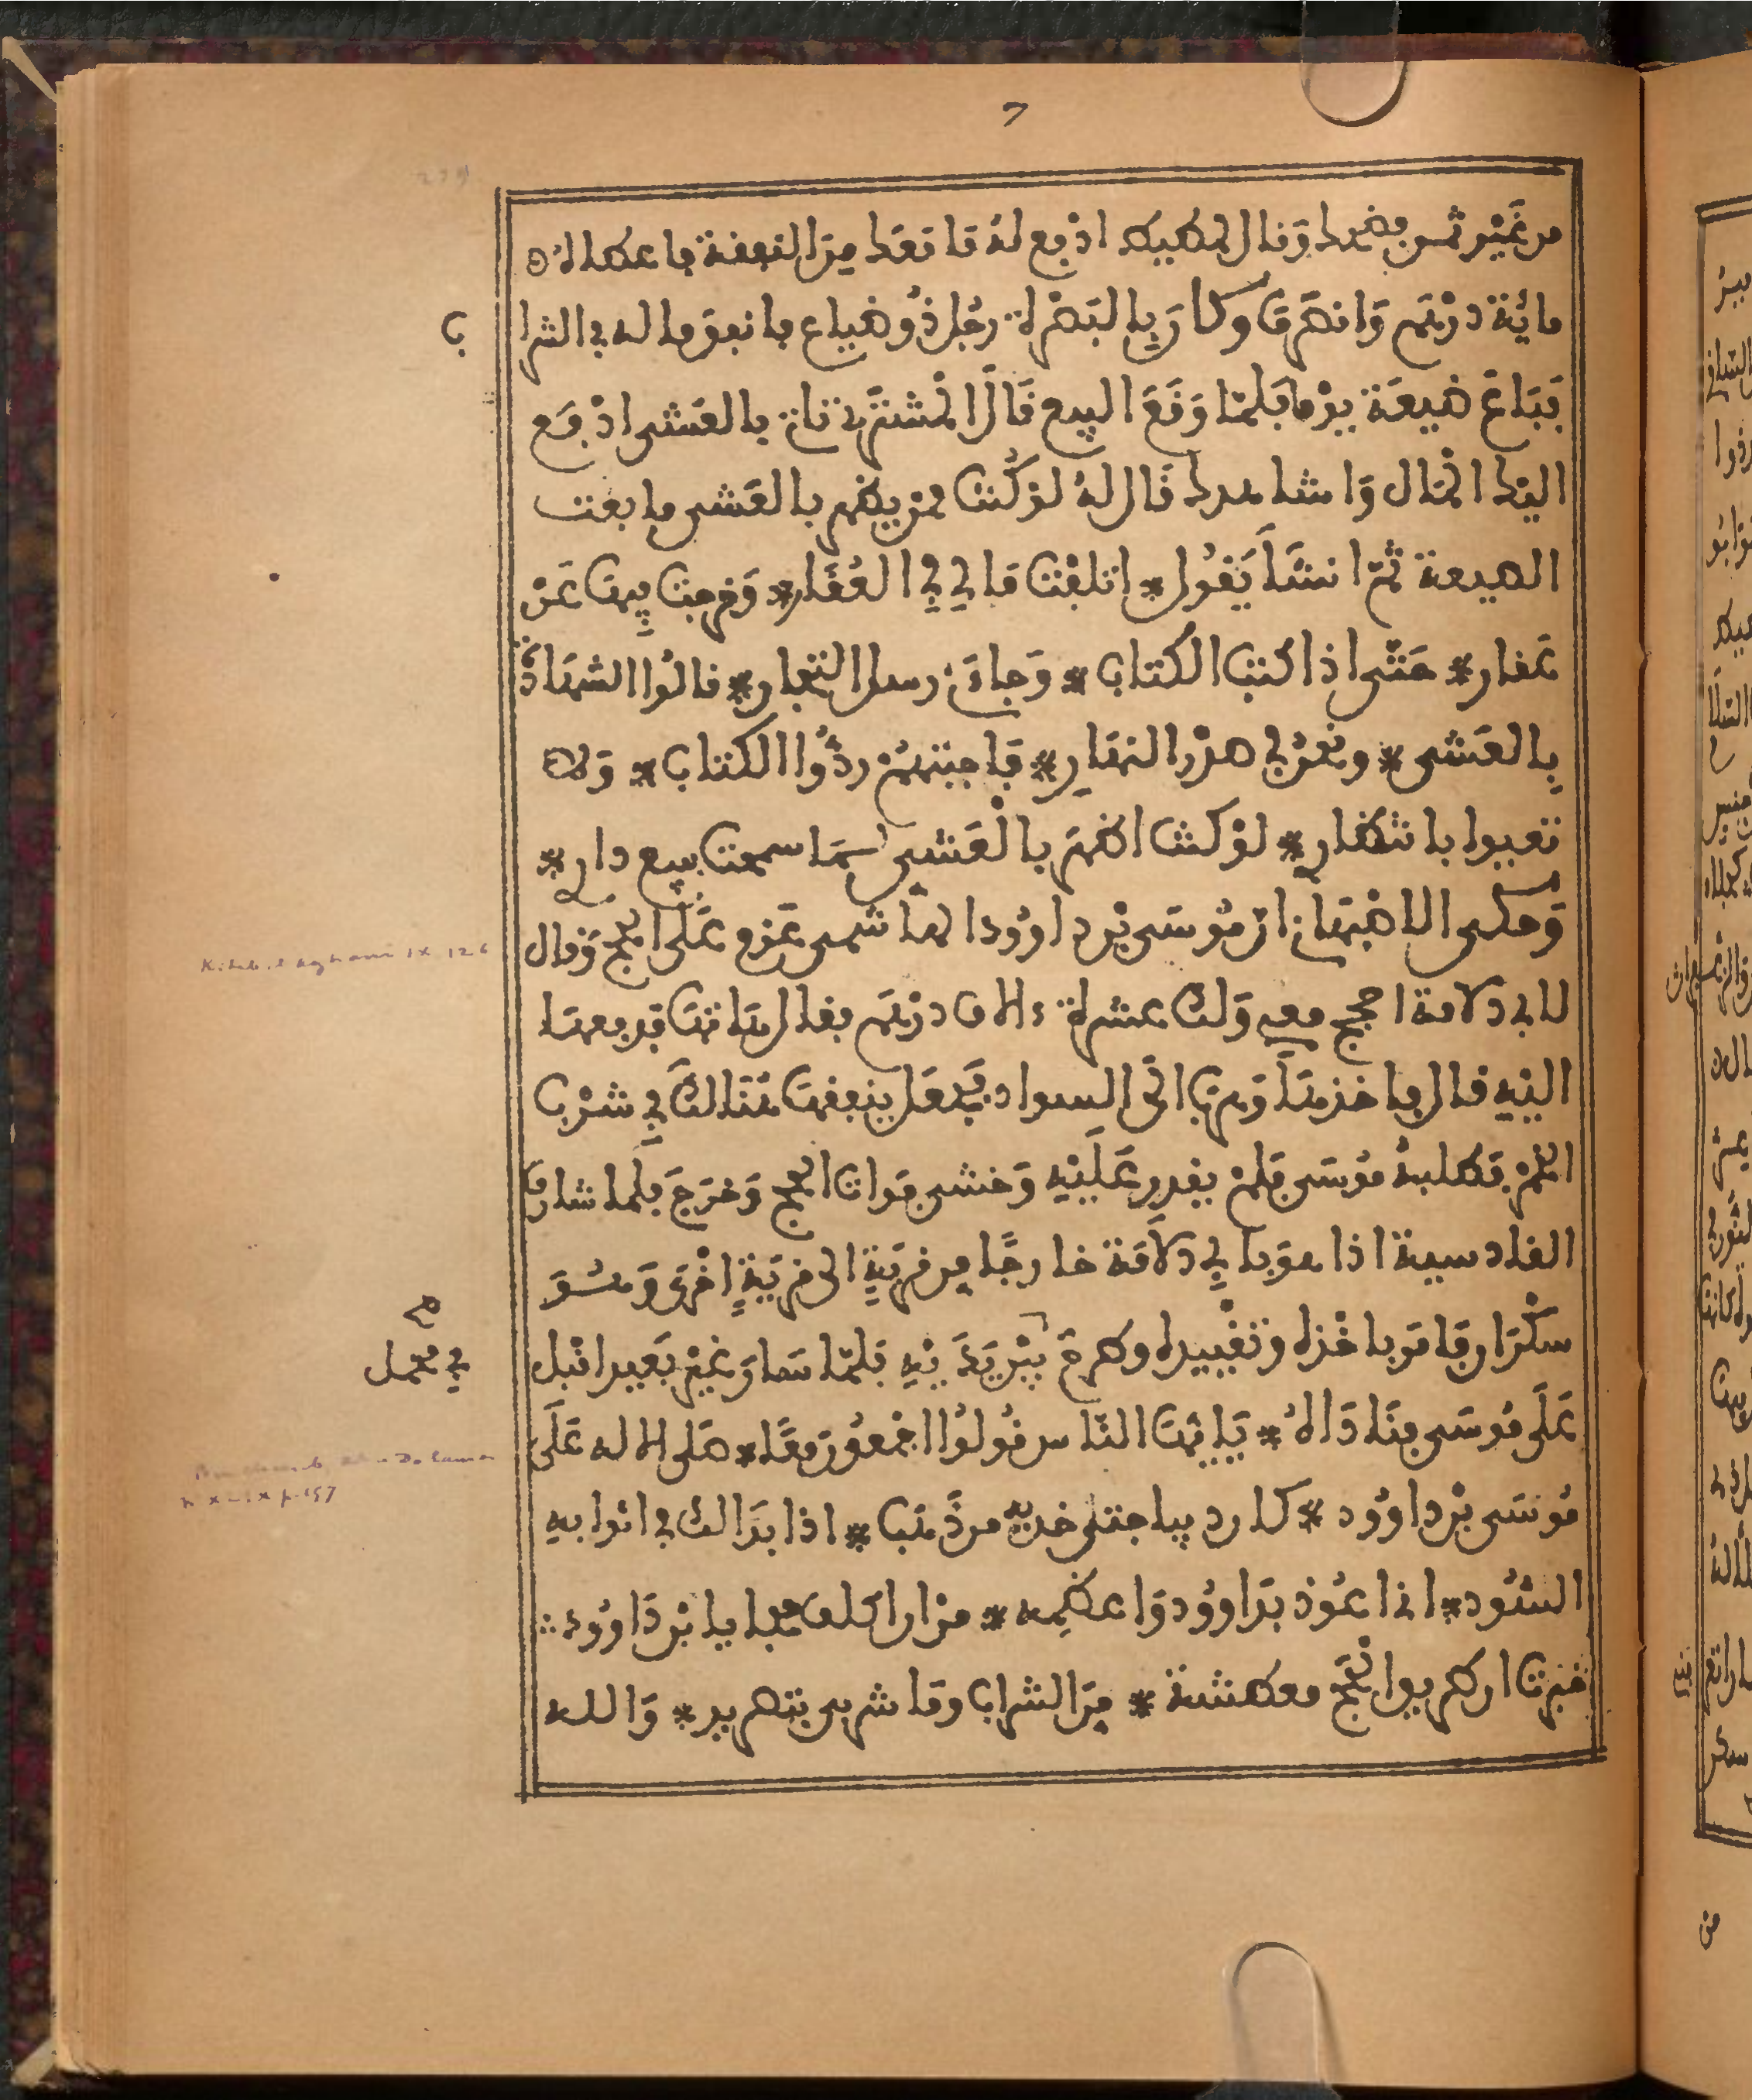 7
من غَيْر ثمن فضحك وَقال للطبيب ادْفع لهُ مَا مَعَك مِنَ النفقة فاعطاه
مائَة دِرْهَم وَانصَرَفَ وكانَ بِالبَصْرة رجُل ذُو ضياع فانفق ماله في الشرا
ب
فَبَاعَ ضَيعَة يومًا فلمّا وَقَعَ البيع قَالَ المْشتَري تاتي بالعَشي ادْفَع
اليْك المَال وَاشاهدك قَال لهُ لوْ كُنت ممن يظهر بالعَشي ما بعت
الضيعة ثمّ انشَأ يَقُول * اتلفْت مَالِي فِي العُقَار * وَخرجت فِيهَا عَنْ
عَقار * حَتّى اذا كتب الكتاب * وَجاءَني رسل التجار * قالُوا الشهَادَة
بِالعَشي * ونحْن في صدْر النهَارِ * فَاجبتهمْ ردُّوا الكتاب * وَلا
تعبوا بانتظار * لوْ كنت اظهَر بالْعَشي لمَا سمعت ببيع دار *
وَحكى الاصْبَهَاني انّ مُوسَى بْن داوُود الهاشمي عَزم عَلَى الحج وَقال
Kitab el aghani IX 126
لابي دلامة احجج معي وَلك عشرة ءالاف دِرْهَم فقال هَاتهَا فدفعهَا
اليْهِ قال فاخذهَا وَهرَبَ الى السواد فَجعَل ينفقهَا هُنَالكَ في شرْب
الخمْر فَطلبهُ مُوسَى فلمْ يقدر عَليْهِ وَخشي فوات الحج وَخرَجَ فلما شارف
القادسية اذا هوَ بابِي دلَامَة خارجًا مِن قرْيَةٍ الى قرْيَةٍ اخْرى وَهُوَ
سكْرَان فامَر باخْذه وَتقْييده وطرحَ بيْن يَدَيْهِ فَلمّا سَار غيْر بَعيد اقبل
في محمل
عَلَى مُوسَى فنَادَاهُ * يَا ايّهَا النّاس قُولُوا اجْمعُون معًا * صَلى الاله عَلَى
مُوسَى بْن داوُود * كان ديباجتي خديه من ذَهَب * اذا بدَا لك في اثوابه
السُّود * اني اعُوذ بدَاوُود وَاعظمه * منْ ان اكلف حجا يا بْن دَاوُود
خبرت ان طريق الحَجّ معطشة * مِنَ الشراب ومَا شربي بتصريد * وَالله